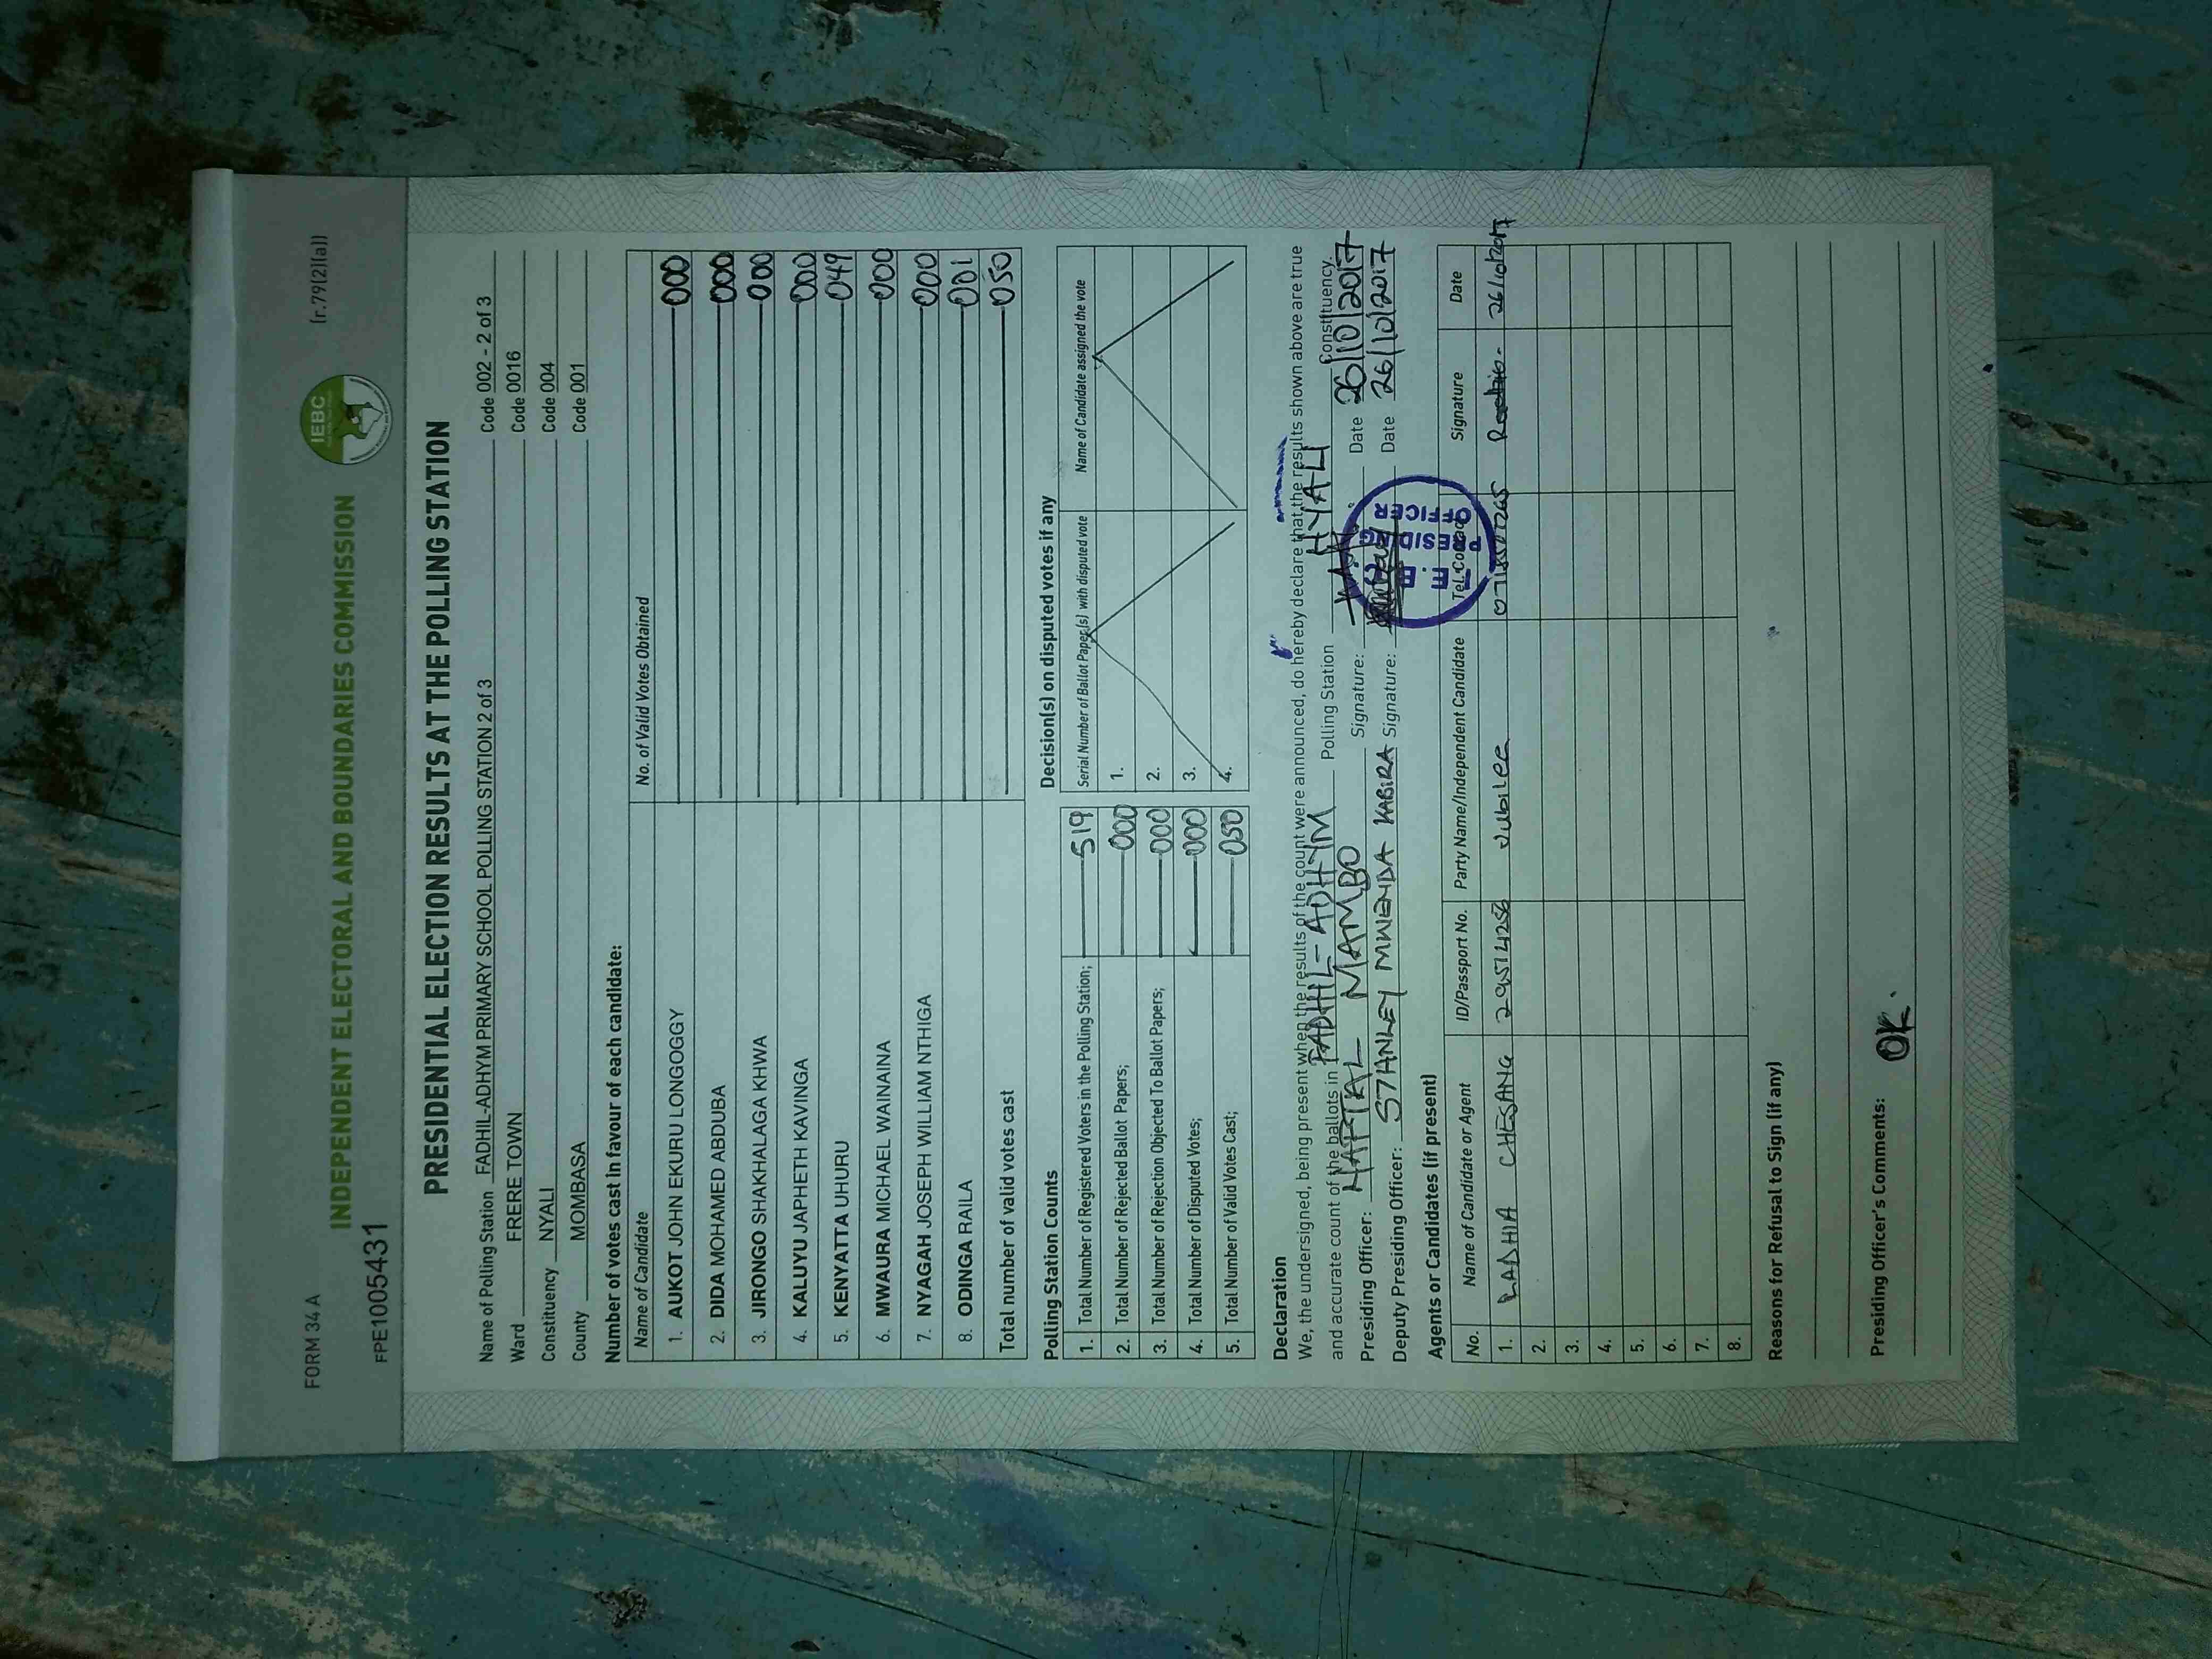 FORM 34 A
(r.79(2)(a))
INDEPENDENT ELECTORAL AND BOUNDARIES COMMISSION
IEBC
FPE10054311
PRESIDENTIAL ELECTION RESULTS AT THE POLLING STATION
Name of Polling Station FADHIL-ADHYM PRIMARY SCHOOL POLLING STATION 2 of 3 Code 002 - 2 of 3
Ward FRERE TOWN Code 0016
Constituency NYALI Code 004
County MOMBASA Code 001
Number of votes cast in favour of each candidate:
Name of Candidate No. of Valid Votes Obtained
1. AUKOT JOHN EKURU LONGOGGY 000
2. DIDA MOHAMED ABDUBA 000
3. JIRONGO SHAKHALAGA KHWA 000
4. KALUYU JAPHETH KAVINGA 000
5. KENYATTA UHURU 049
6. MWAURA MICHAEL WAINAINA 000
7. NYAGAH JOSEPH WILLIAM NTHIGA 000
8. ODINGA RAILA 001
Total number of valid votes cast 050
Polling Station Counts
1. Total Number of Registered Voters in the Polling Station; 519
2. Total Number of Rejected Ballot Papers; 000
3. Total Number of Rejection Objected To Ballot Papers; 000
4. Total Number of Disputed Votes; 000
5. Total Number of Valid Votes Cast; 050
Decision(s) on disputed votes if any
Serial Number of Ballot Paper(s) with disputed vote Name of Candidate assigned the vote
1.
2.
3.
4.
Declaration
We, the undersigned, being present when the results of the count were announced, do hereby declare that the results shown above are true
and accurate count of the ballots in FADHIL-ADHYM Polling Station NYALI Constituency.
Presiding Officer: HAPTAL MAMBO Signature: Date 26/10/2017
Deputy Presiding Officer: STANLEY MWENDA KABIRA Signature: Date 26/10/2017
PRESIDING
OFFICER
Agents or Candidates (if present)
No. Name of Candidate or Agent ID/Passport No. Party Name/Independent Candidate Tel. Contact Signature Date
1. RADHIA CHESANG Jubilee 26/10/2017
2.
3.
4.
5.
6.
7.
8.
Reasons for Refusal to Sign (if any)
Presiding Officer's Comments: OK.